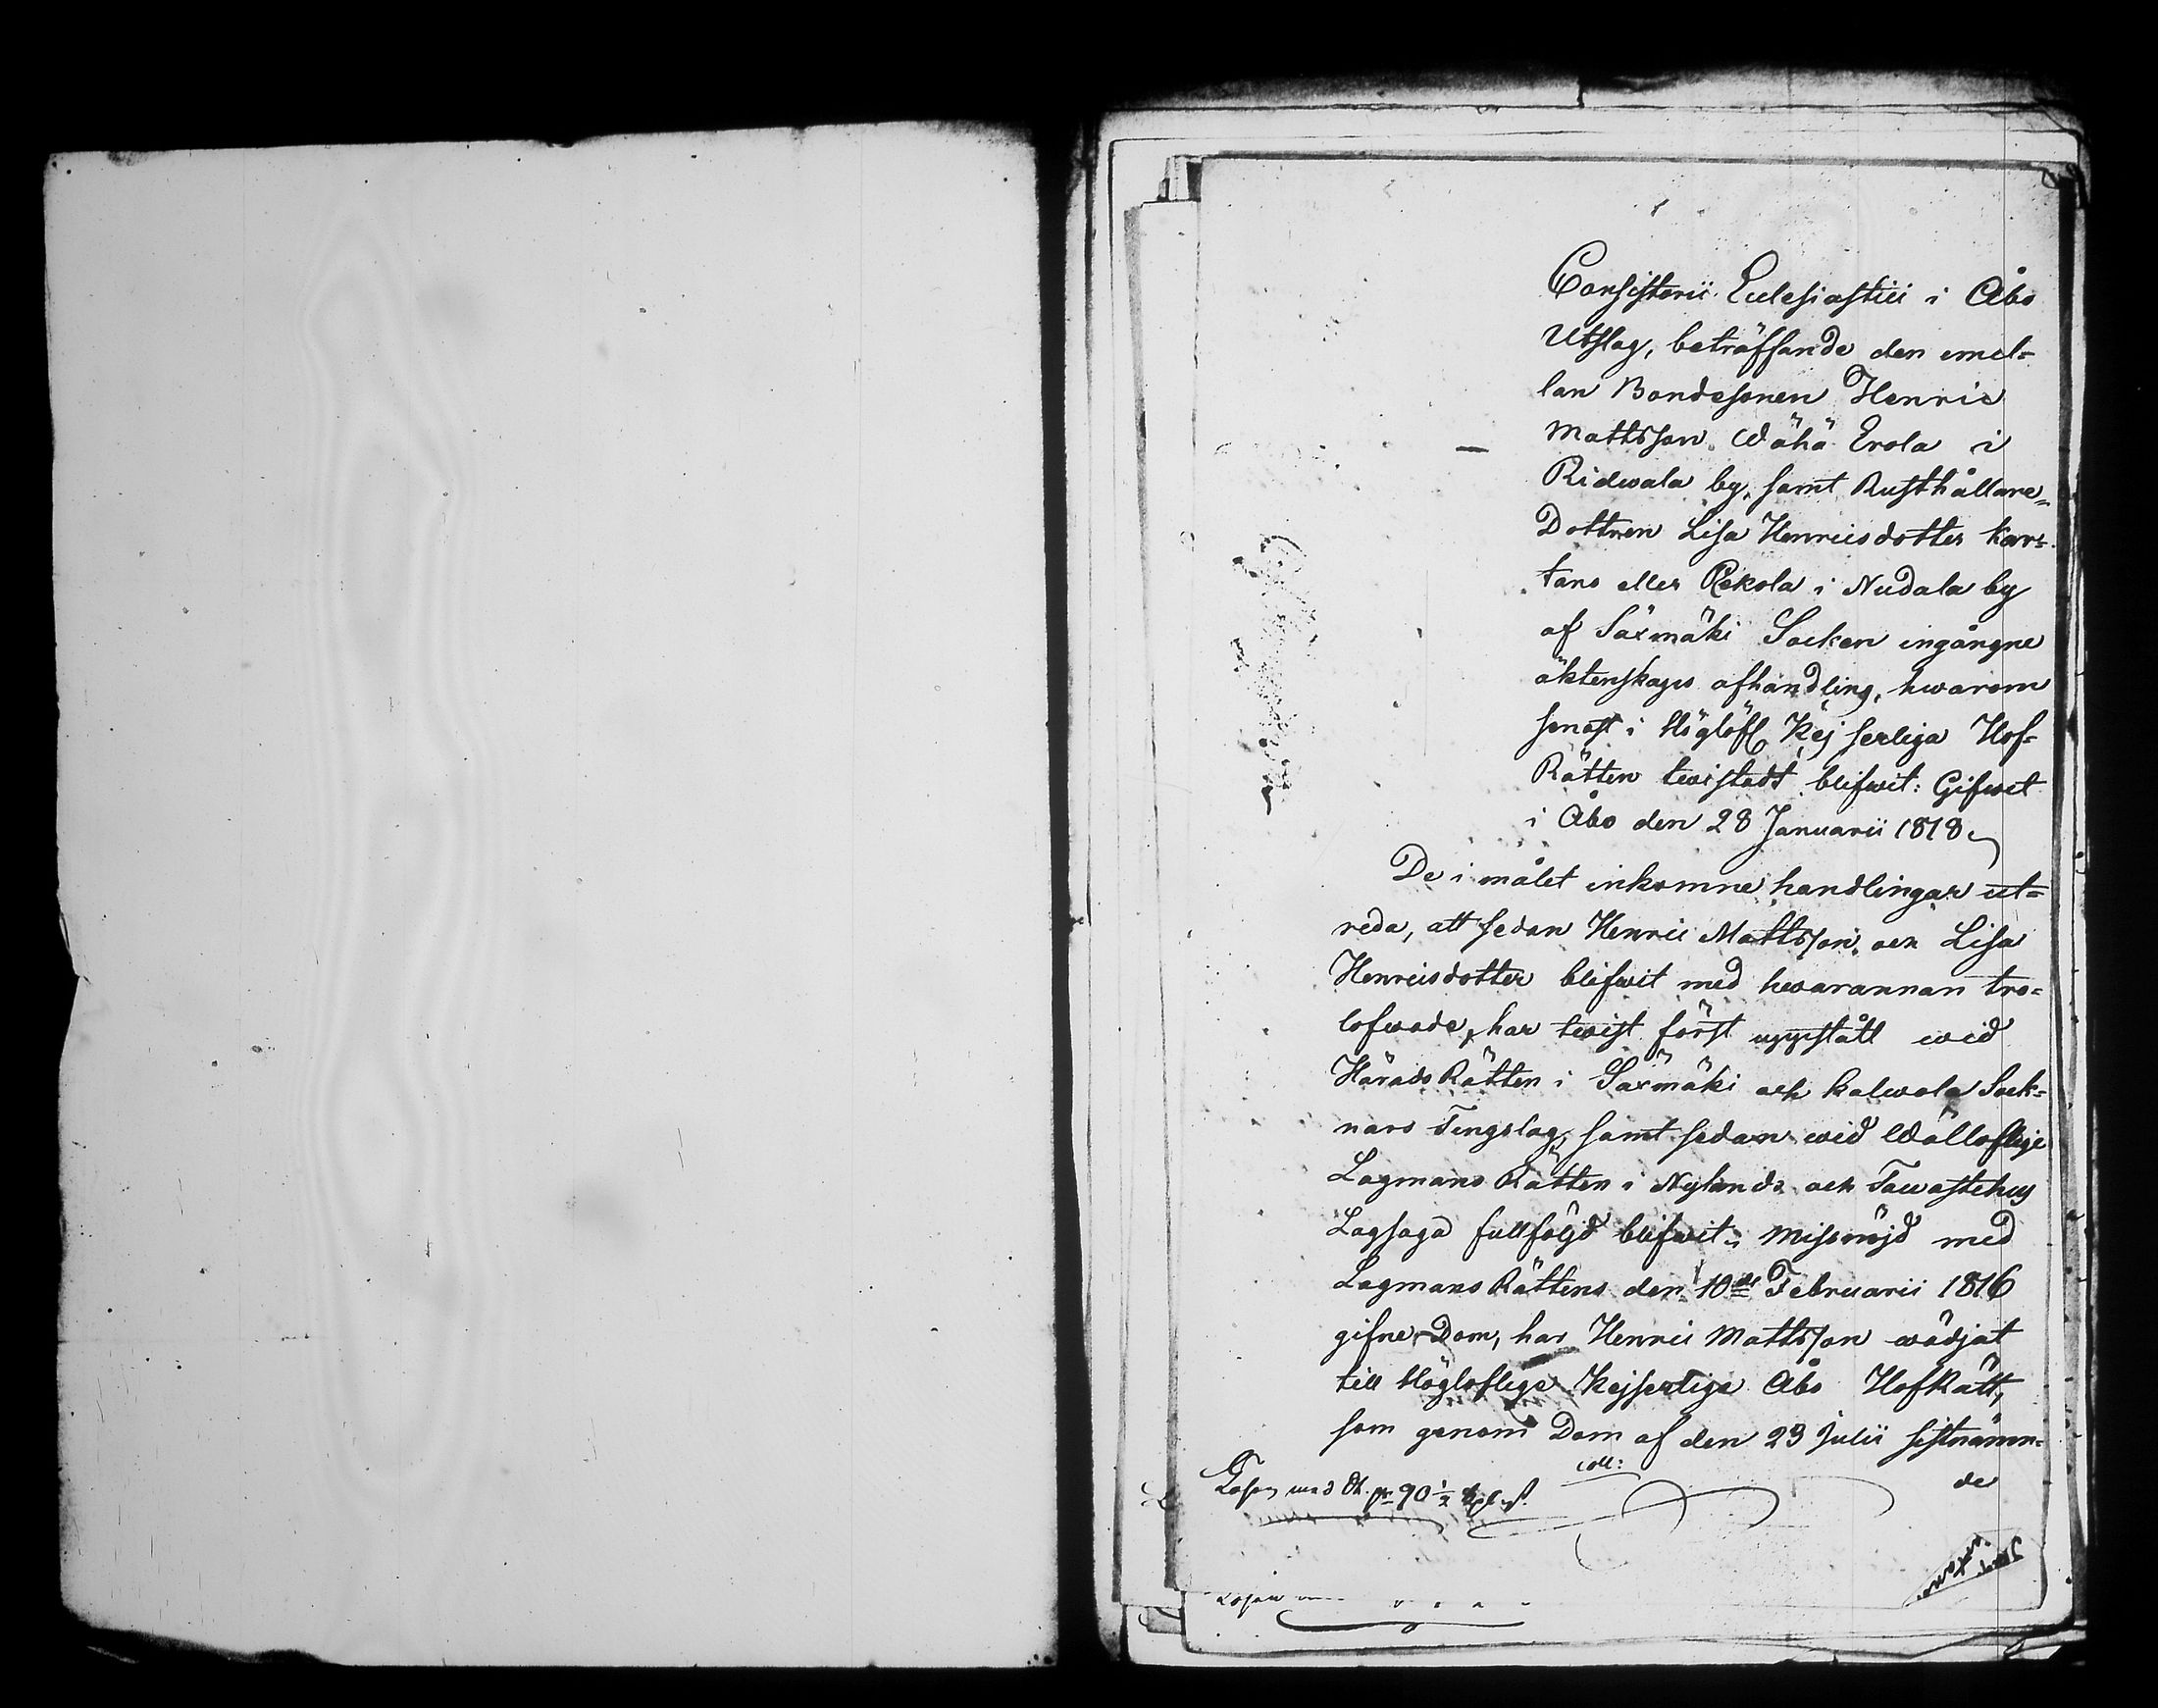 Consistorii Ecclesiastici i Åbo
Utslag, beträffande den emel=
lan Bondesonen Henric
Mattsson Wähä Erola i
Ridwala by, samt Rusthållare=
Dottren Lisa Henricsdotter Kar=
tano eller Pekola i Nudala by
af Säxmäki Socken ingångne
äktenskaps afhandling, hwarom
senast i Höglofl. Kejserliga Hof=
Rätten twistadt blifwit: Gifwet
i Åbo den 28 Januarii 1818.
De i målet inkomne handlingar ut=
reda, att sedan Henric Mattsson och Lisa
Henricsdotter blifwit med hwarannan tro=
lofwade, har twist först uppstått wid
HäradsRätten i Säxmäki och Kalwola Sock=
nars Tingslag, samt sedan wid Wälloflige
Lagmans Rätten i Nylands och Tawastehus
Lagsaga fullföljd blifwit. Missnöjd med
LagmansRättens den 10de Februarii 1816
gifne Dom, har Henric Mattsson wädjat
till Högloflige Kejserlige Åbo HofRätt,
som genom Dom af den 23 Julii sistnämn=
de
coll:
Lösen med Ch. pr 90 1/2
Lösen